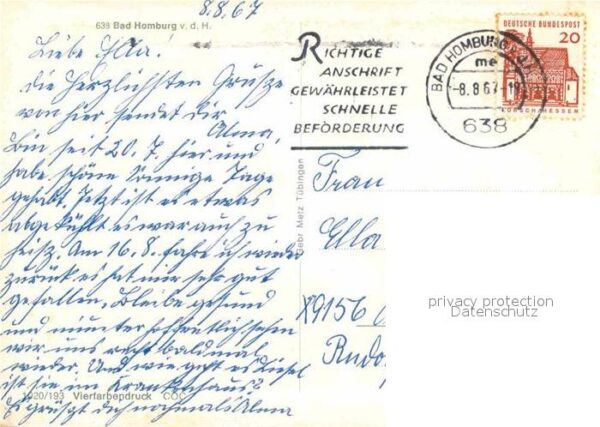 8.8.67
638 Bad Homburg v. d. H.
Liebe Ella!
Die herzlichsten Grüsse
von hier sendet dir
Alma.
Bin seit 20.7. hier und
habe schöne sonnige Tage
gehabt. Jetzt ist es etwas
abgekühlt es war auch zu
heiß. Am 16.8. fahre ich wieder
zurück es hat mir sehr gut
gefallen. Bleibe gesund
und munter hoffentlich sehn
wir uns recht bald mal
wieder. Und wie geht es Liesel
ist sie im Krankenhaus?
Es grüsst dich nochmals Alma
1020/193 Vierfarbendruck COC
Gebr Metz Tübingen
RICHTIGE
ANSCHRIFT
GEWÄHRLEISTET
SCHNELLE
BEFÖRDERUNG
BAD HOMBURG
me
-8.8.67-
638
DEUTSCHE BUNDESPOST
20
LORSCH/HESSEN
Frau
Ella
X9156
Rudo
privacy protection
Datenschutz